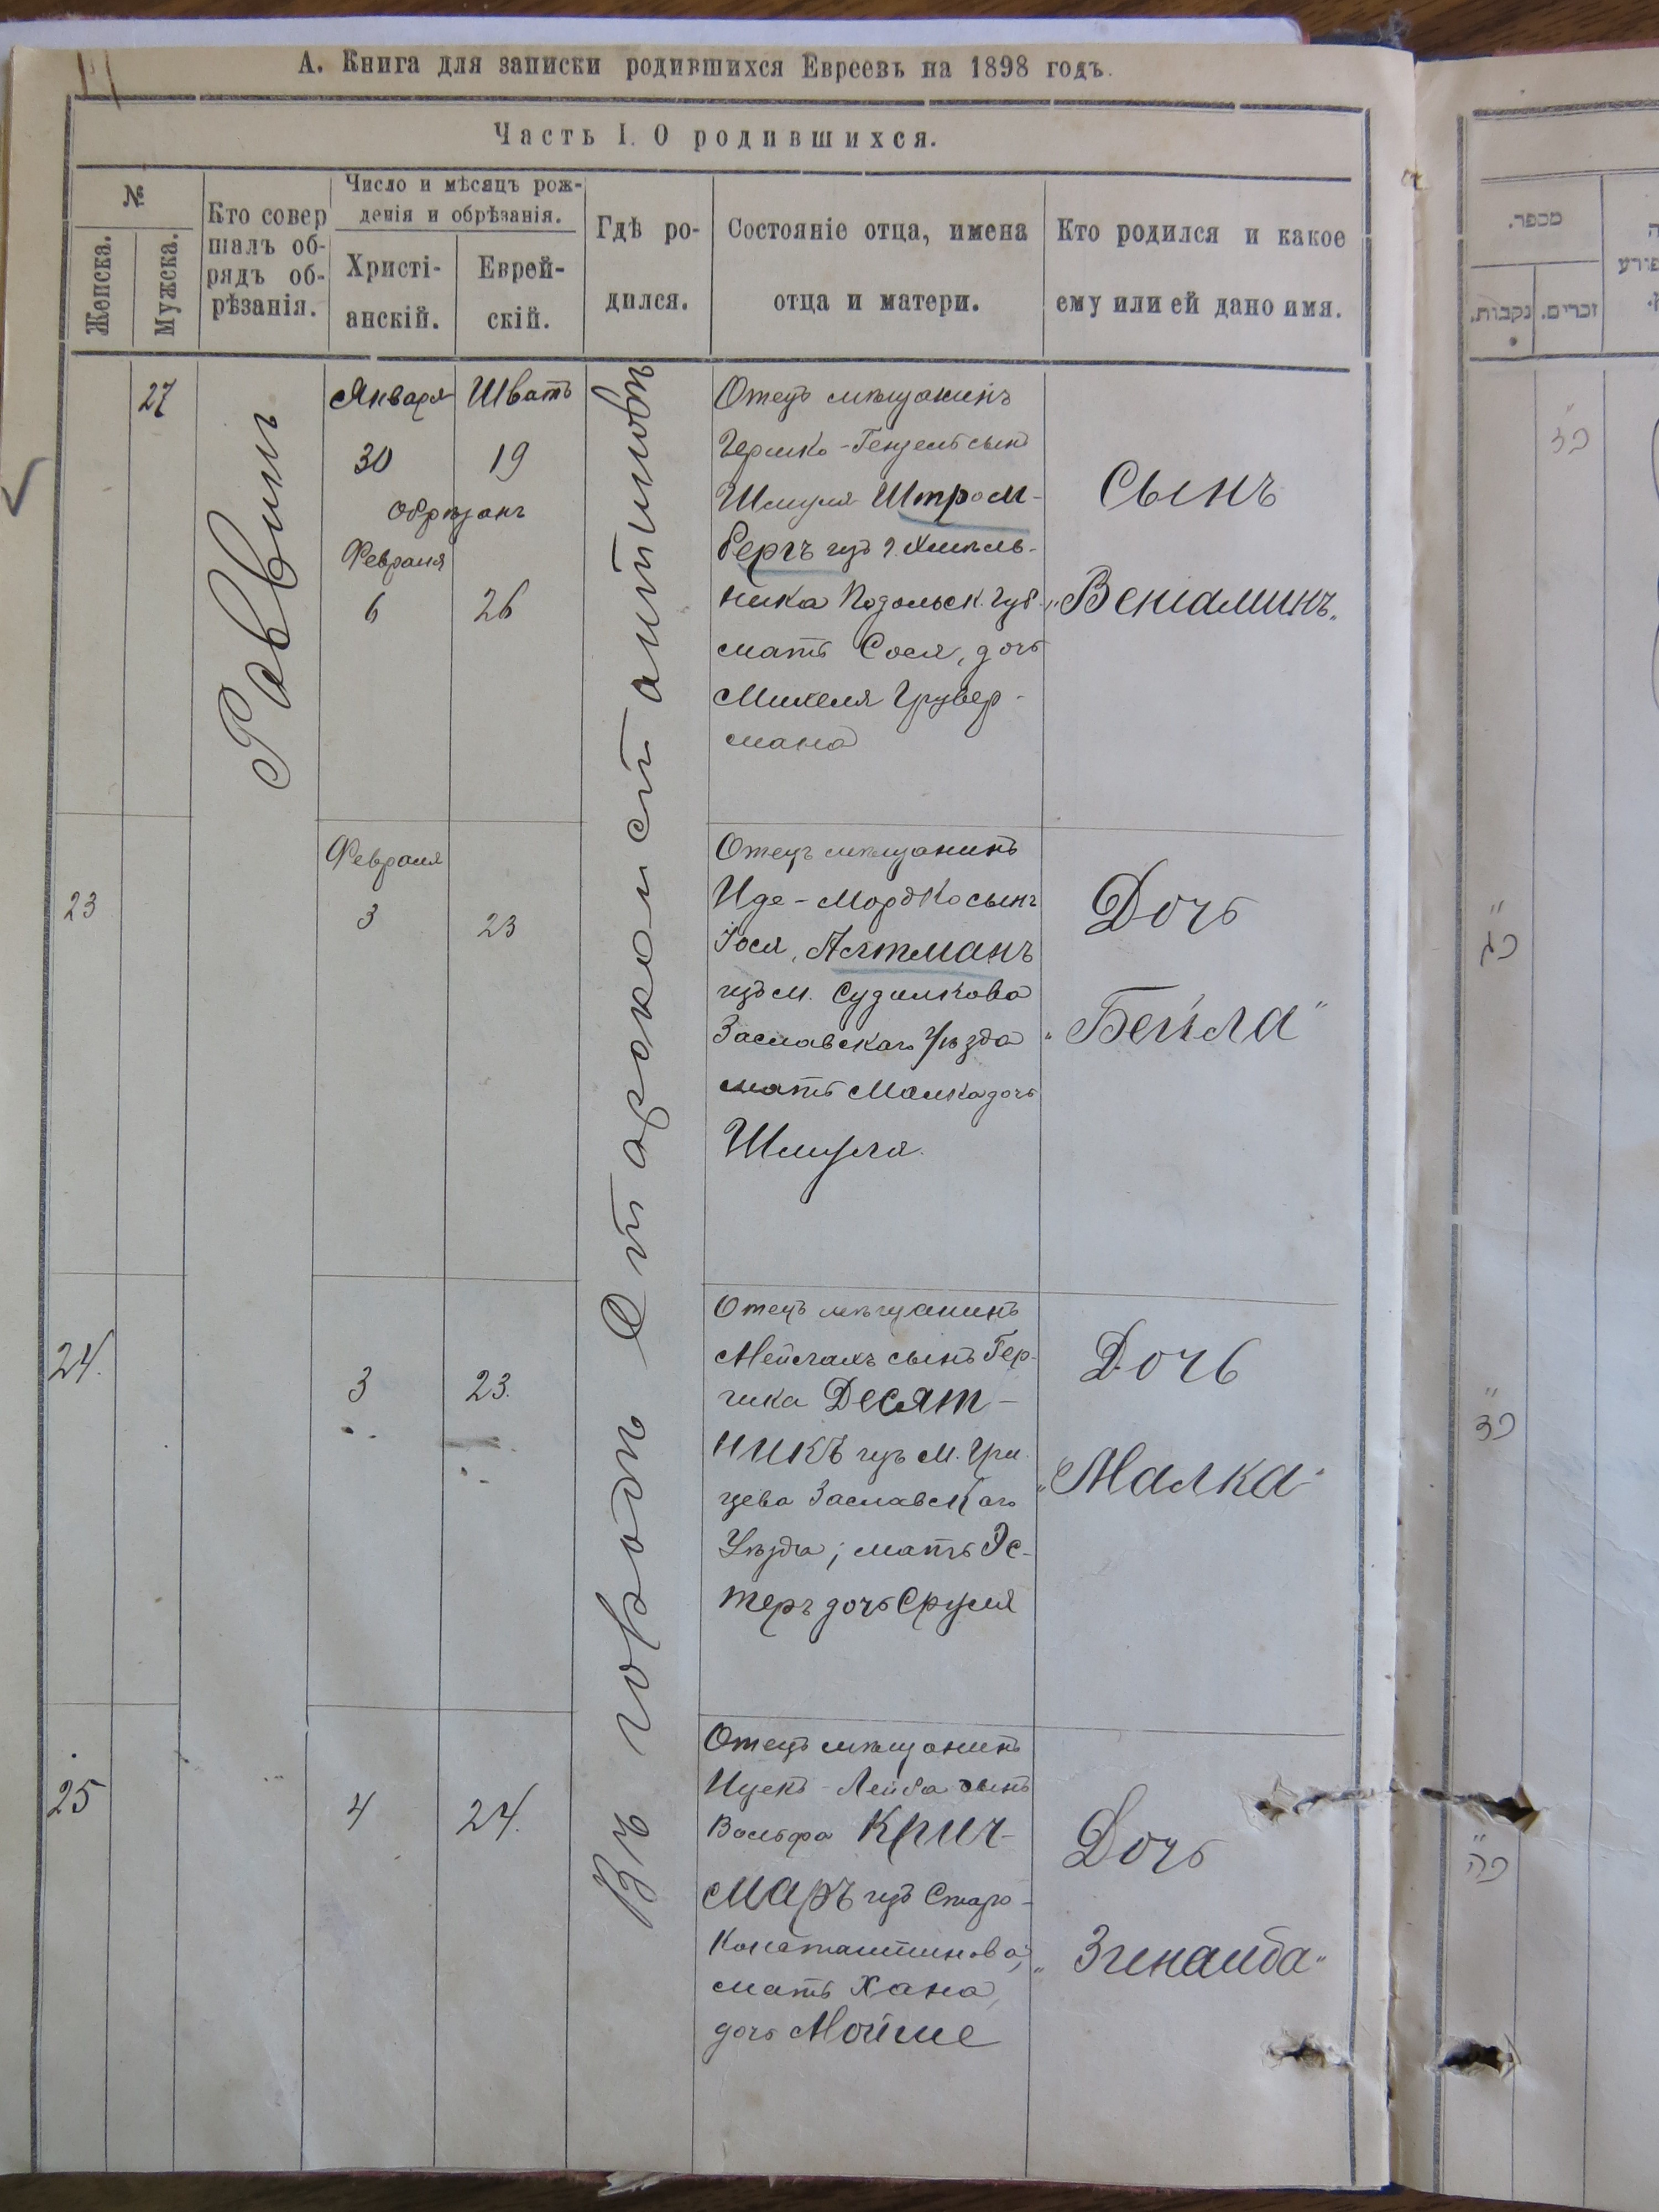 А. Книга для записки родившихся Евреевъ на 1898 годъ.
Часть I. О родившихся.
№
Женска.
Мужска.
Кто совер
шалъ об-
рядъ об-
рѣзанія.
Число и мѣсяцъ рож-
денія и обрѣзанія.
Христі-
анскій.
Еврей-
скій.
Гдѣ ро-
дился.
Состояніе отца, имена
отца и матери.
Кто родился и какое
ему или ей дано имя.
Раввинъ
Въ городѣ Староконстантиновѣ
27
Января
Шватъ
30
19
Обрѣзанъ
Февраля
6
26
Отецъ мѣщанинъ
Гершко-Гензель сынъ
Шмуля Штром-
бергъ изъ г. Хмѣль-
ника Подольск. губ.
мать Сося, дочь
Михеля Грувер-
мана
Сынъ
„Веніаминъ„
23
Февраля
3
23
Отецъ мѣщанинъ
Иде-Мордко сынъ
Іося, Алтманъ
изъ м. Судилкова
Заславскаго Уѣзда
мать Малка дочь
Шмуля.
Дочь
„Бейла"
24.
3
23.
Отецъ мѣщанинъ
Мейлахъ сынъ Гер-
шка Десят-
никъ изъ м. Гри-
цева Заславскаго
Уѣзда; мать Эс-
теръ дочь Сруля
Дочь
„Малка"
25
4
24.
Отецъ мѣщанинъ
Ицекъ-Лейба сынъ
Вольфа Крич-
маръ изъ Старо-
Константинова,
мать Хана,
дочь Мойше
Дочь
מספר.
נקבות.
זכרים.
כז
כג
כד
כה